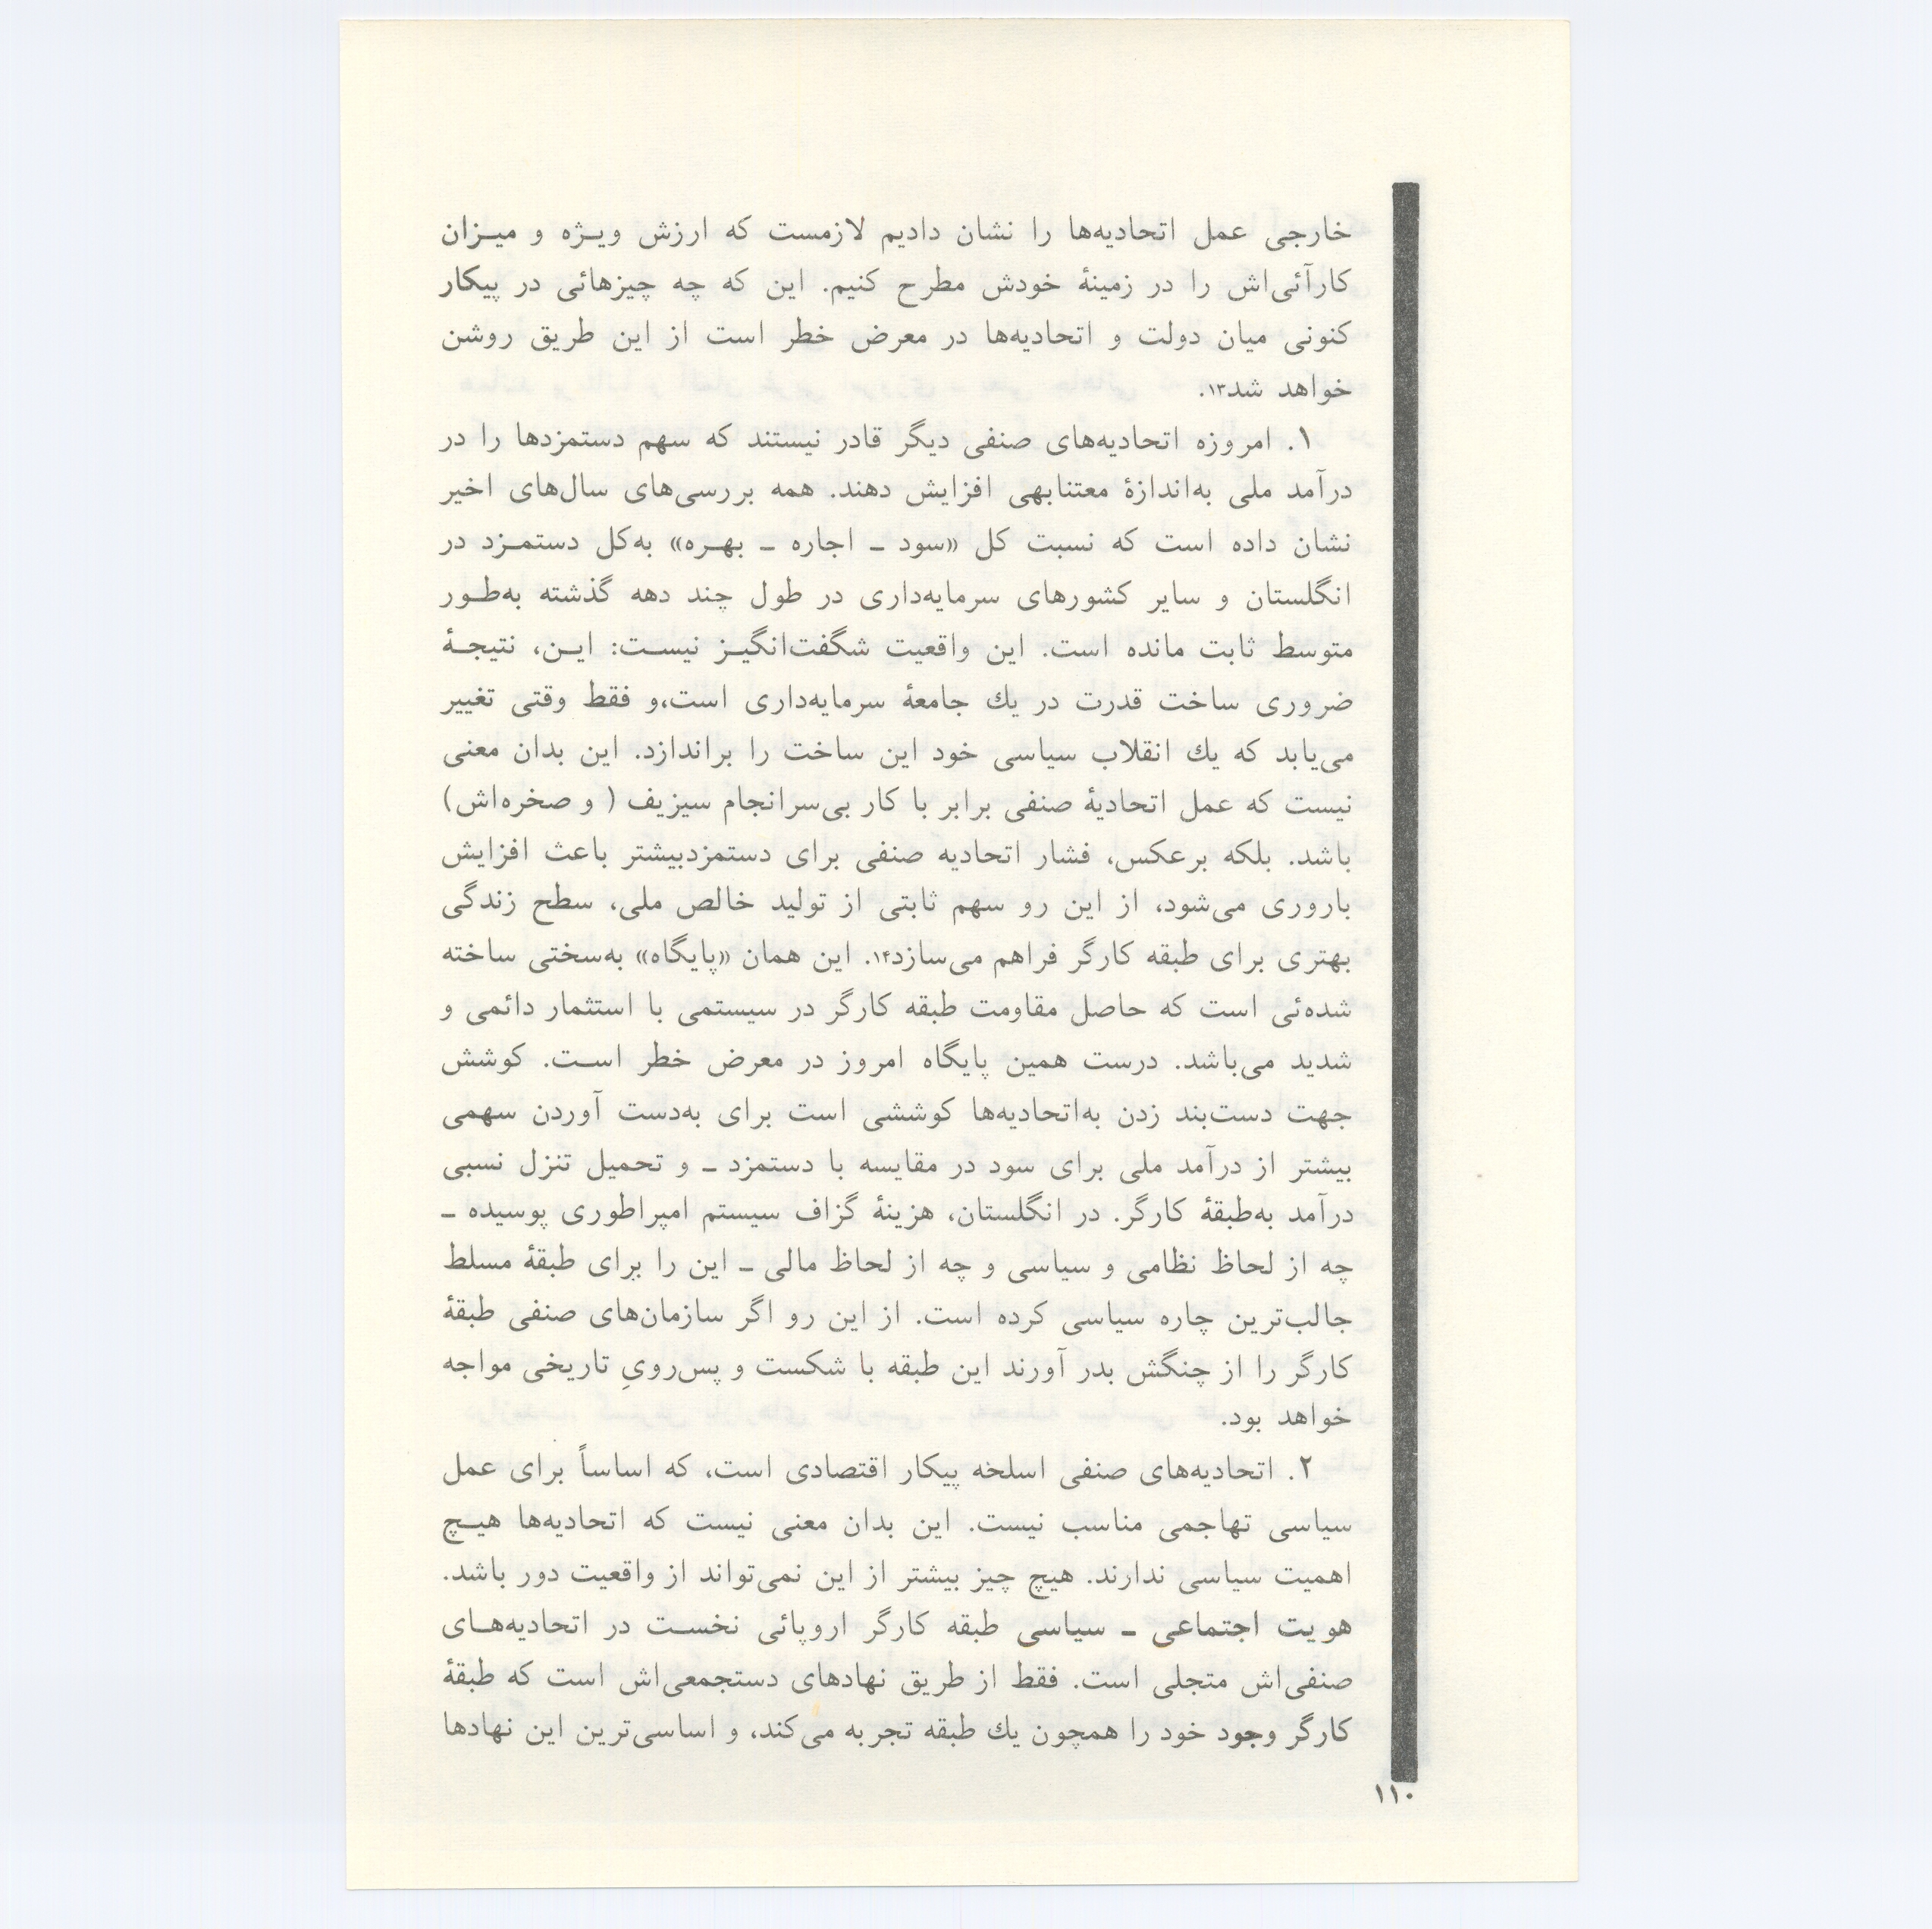 خارجی عمل اتحادیه‌ها را نشان دادیم لازمست که ارزش ویـژه و میـزان
کارآئی‌اش را در زمینهٔ خودش مطرح کنیم. این که چه چیزهائی در پیکار
کنونی میان دولت و اتحادیه‌ها در معرض خطر است از این طریق روشن
خواهد شد۱۳.
۱. امروزه اتحادیه‌های صنفی دیگر قادر نیستند که سهم دستمزدها را در
درآمد ملی به‌اندازهٔ معتنابهی افزایش دهند. همه بررسی‌های سال‌های اخیر
نشان داده است که نسبت کل «سود ـ اجاره ـ بهـره» به‌کل دستمـزد در
انگلستان و سایر کشورهای سرمایه‌داری در طول چند دهه گذشته به‌طـور
متوسط ثابت مانده است. این واقعیت شگفت‌انگیـز نیسـت: ایـن، نتیجـهٔ
ضروری ساخت قدرت در یك جامعهٔ سرمایه‌داری است،و فقط وقتی تغییر
می‌یابد که یك انقلاب سیاسی خود این ساخت را براندازد. این بدان معنی
نیست که عمل اتحادیهٔ صنفی برابر با کار بی‌سرانجام سیزیف ( و صخره‌اش)
باشد. بلکه برعکس، فشار اتحادیه صنفی برای دستمزدبیشتر باعث افزایش
باروری می‌شود، از این رو سهم ثابتی از تولید خالص ملی، سطح زندگی
بهتری برای طبقه کارگر فراهم می‌سازد۱۴. این همان «پایگاه» به‌سختی ساخته
شده‌ئی است که حاصل مقاومت طبقه کارگر در سیستمی با استثمار دائمی و
شدید می‌باشد. درست همین پایگاه امروز در معرض خطر اسـت. کوشش
جهت دست‌بند زدن به‌اتحادیه‌ها کوششی است برای به‌دست آوردن سهمی
بیشتر از درآمد ملی برای سود در مقایسه با دستمزد ـ و تحمیل تنزل نسبی
درآمد به‌طبقهٔ کارگر. در انگلستان، هزینهٔ گزاف سیستم امپراطوری پوسیده ـ
چه از لحاظ نظامی و سیاسی و چه از لحاظ مالی ـ این را برای طبقهٔ مسلط
جالب‌ترین چاره سیاسی کرده است. از این رو اگر سازمان‌های صنفی طبقهٔ
کارگر را از چنگش بدر آورند این طبقه با شکست و پس‌رویِ تاریخی مواجه
خواهد بود.
۲. اتحادیه‌های صنفی اسلحه پیکار اقتصادی است، که اساساً برای عمل
سیاسی تهاجمی مناسب نیست. این بدان معنی نیست که اتحادیه‌ها هیـچ
اهمیت سیاسی ندارند. هیچ چیز بیشتر از این نمی‌تواند از واقعیت دور باشد.
هویت اجتماعی ـ سیاسی طبقه کارگر اروپائی نخسـت در اتحادیه‌هـای
صنفی‌اش متجلی است. فقط از طریق نهادهای دستجمعی‌اش است که طبقهٔ
کارگر وجود خود را همچون یك طبقه تجربه می‌کند، و اساسی‌ترین این نهادها
۱۱۰